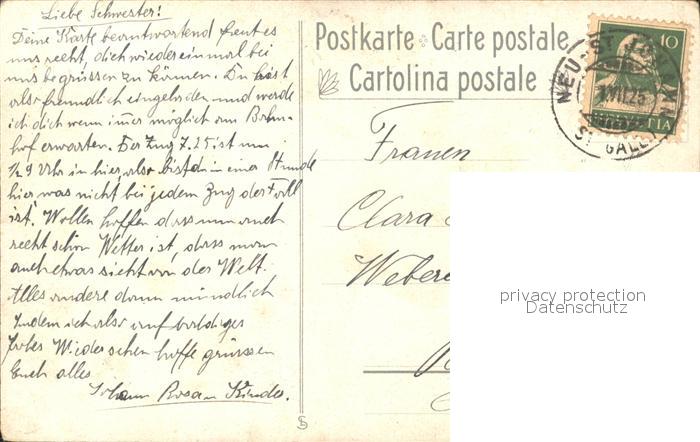 Liebe Schwester!
Deine Karte beantwortend freut es
uns recht, dich wieder einmal bei
uns begrüssen zu können. Du bist
also freundlich eingeladen und werde
ich dich wenn imer möglich am Bahn-
hof erwarten. Der Zug 7.25 ist um
1/2 9 Uhr in hier, also bist du in einer Stunde
hier was nicht bei jedem Zug der Fall
ist. Wollen hoffen dass nun auch
recht schön Wetter ist, dass man
auch etwas sieht von der Welt.
Alles andere dann mündlich
Indem ich also auf baldiges
frohes Wiedersehen hoffe grüssen
Euch alles
Johann Rosa u Kinder.
Postkarte Carte postale
Cartolina postale
10
NEU-ST. JOHANN
VII.25
ST. GALLEN
Frauen
Clara
Webere
privacy protection
Datenschutz